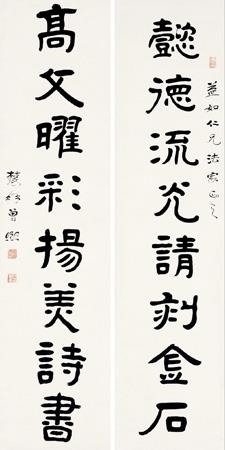 益如仁兄法家正之
懿德流光請刻金石
高文曜彩揚美詩書
農髯曾熙